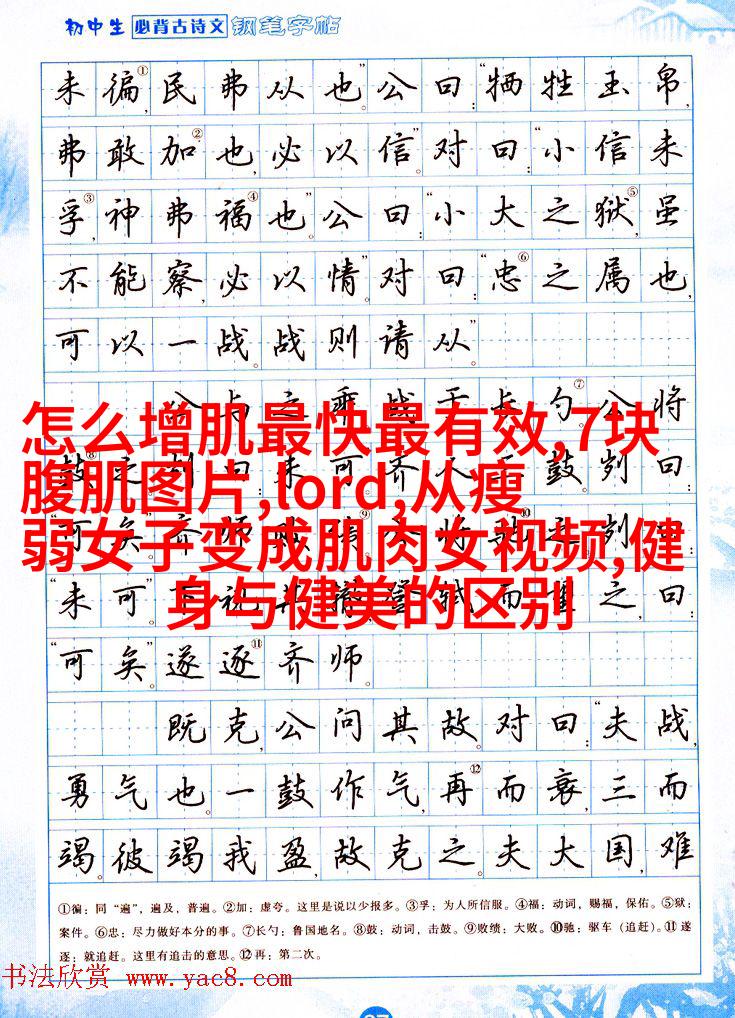 初中生 必背古诗文 钢笔字帖
未徧①，民弗从也。”公曰：“牺牲玉帛，
弗敢加②也，必以信。”对曰：“小信未
孚③，神弗福④也。”公曰：“小大之狱⑤，虽
不能察，必以情。”对曰：“忠⑥之属也，
可以一战。战则请从。”
公与之乘 战于长勺⑦。公将
怎么增肌最快最有效,7块
鼓⑧之 刿曰 未可 齐人三鼓 刿曰：
腹肌图片,lord,从瘦
“可矣 齐师 ⑨ 公将驰⑩之 刿曰
弱女子变成肌肉女视频,健
“未可 下视其辙 登轼而望之，曰：
身与健美的区别
“可矣。”遂逐⑪齐师。
既克，公问其故。对曰：“夫战，
勇气也。一鼓作气，再⑫而衰，三而
竭。彼竭我盈，故克之。夫大国，难
①徧：同“遍”，遍及，普遍。②加：虚夸。这里是说以少报多。③孚：为人所信服。④福：动词，赐福，保佑。⑤狱：
案件。⑥忠：尽力做好本分的事。⑦长勺：鲁国地名。⑧鼓：动词，击鼓。⑨败绩：大败。⑩驰：驱车（追赶）。⑪遂
逐：就追赶。这里有追击的意思。⑫再：第二次。
书法欣赏 www.yac8.com